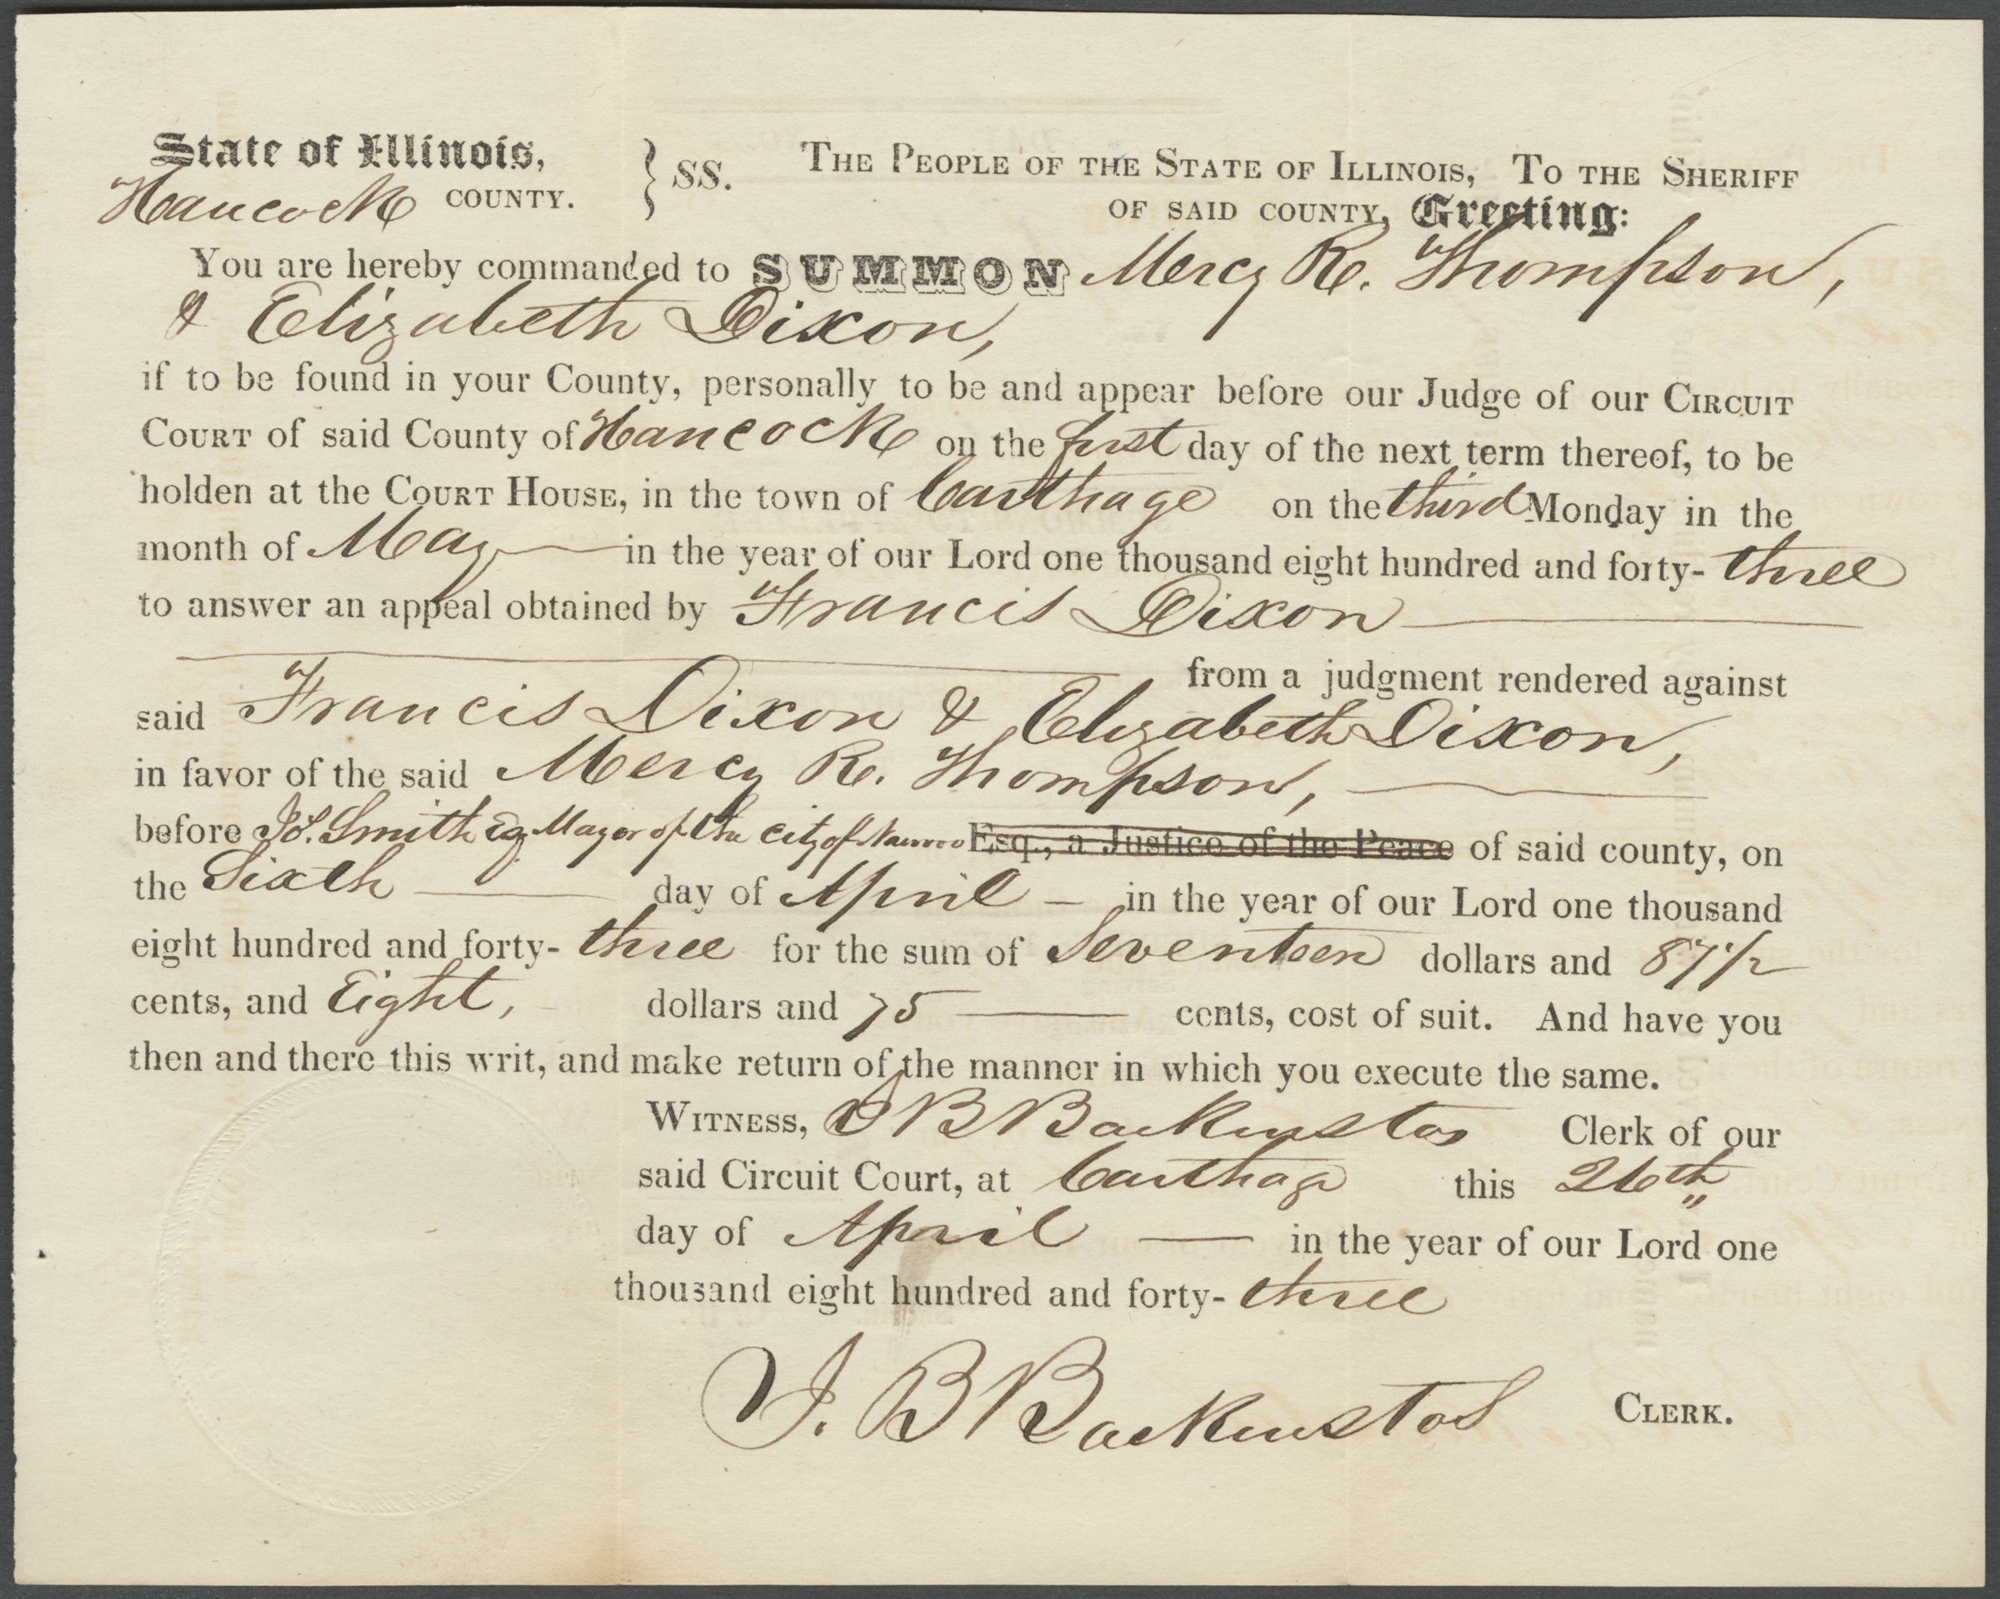 State of Illinois, } SS. THE PEOPLE OF THE STATE OF ILLINOIS, TO THE SHERIFF
Hancock COUNTY. OF SAID COUNTY, Greeting:
You are hereby commanded to SUMMON Mercy R. Thompson,
& Elizabeth Dixon,
if to be found in your County, personally to be and appear before our Judge of our CIRCUIT
COURT of said County of Hancock on the first day of the next term thereof, to be
holden at the COURT HOUSE, in the town of Carthage on the third Monday in the
month of May in the year of our Lord one thousand eight hundred and forty- three
to answer an appeal obtained by Francis Dixon
from a judgment rendered against
said Francis Dixon & Elizabeth Dixon,
in favor of the said Mercy R. Thompson,
before Jos. Smith Esq Mayor of the city of Nauvoo Esq., a Justice of the Peace of said county, on
the Sixth day of April in the year of our Lord one thousand
eight hundred and forty- three for the sum of Seventeen dollars and 87 1/2
cents, and Eight, dollars and 75 cents, cost of suit. And have you
then and there this writ, and make return of the manner in which you execute the same.
WITNESS, J B Backenstos Clerk of our
said Circuit Court, at Carthage this 26th
day of April in the year of our Lord one
thousand eight hundred and forty- three
J. B Backenstos CLERK.